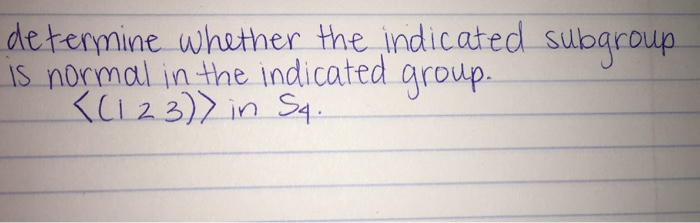 determine whether the indicated subgroup
is normal in the indicated group.
<(1 2 3)> in S4.